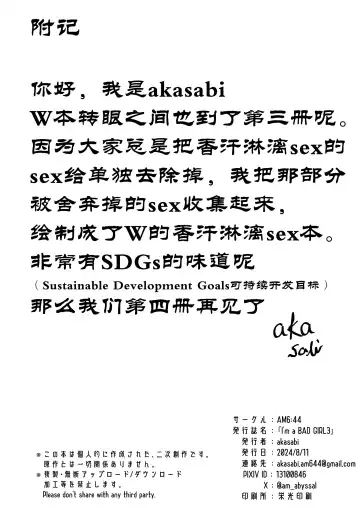 附记
你好，我是akasabi
W本转眼之间也到了第三册呢。
因为大家总是把香汗淋漓sex的
sex给单独去除掉，我把那部分
被舍弃掉的sex收集起来，
绘制成了W的香汗淋漓sex本。
非常有SDGs的味道呢
（Sustainable Development Goals可持续开发目标）
那么我们第四册再见了
aka
sabi
※この本は個人的に作成された、二次創作です。
原作とは一切関係ありません。
※複製・無断アップロード/ダウンロード
加工等を禁止します。
Please don't share with any third party.
サークル：AM6:44
発行誌名：「I'm a BAD GIRL3」
発行者：akasabi
発行日：2024/8/11
連絡先：akasabi.am644@gmail.com
PIXIV ID：13100846
X：@am_abyssal
印刷所：栄光印刷